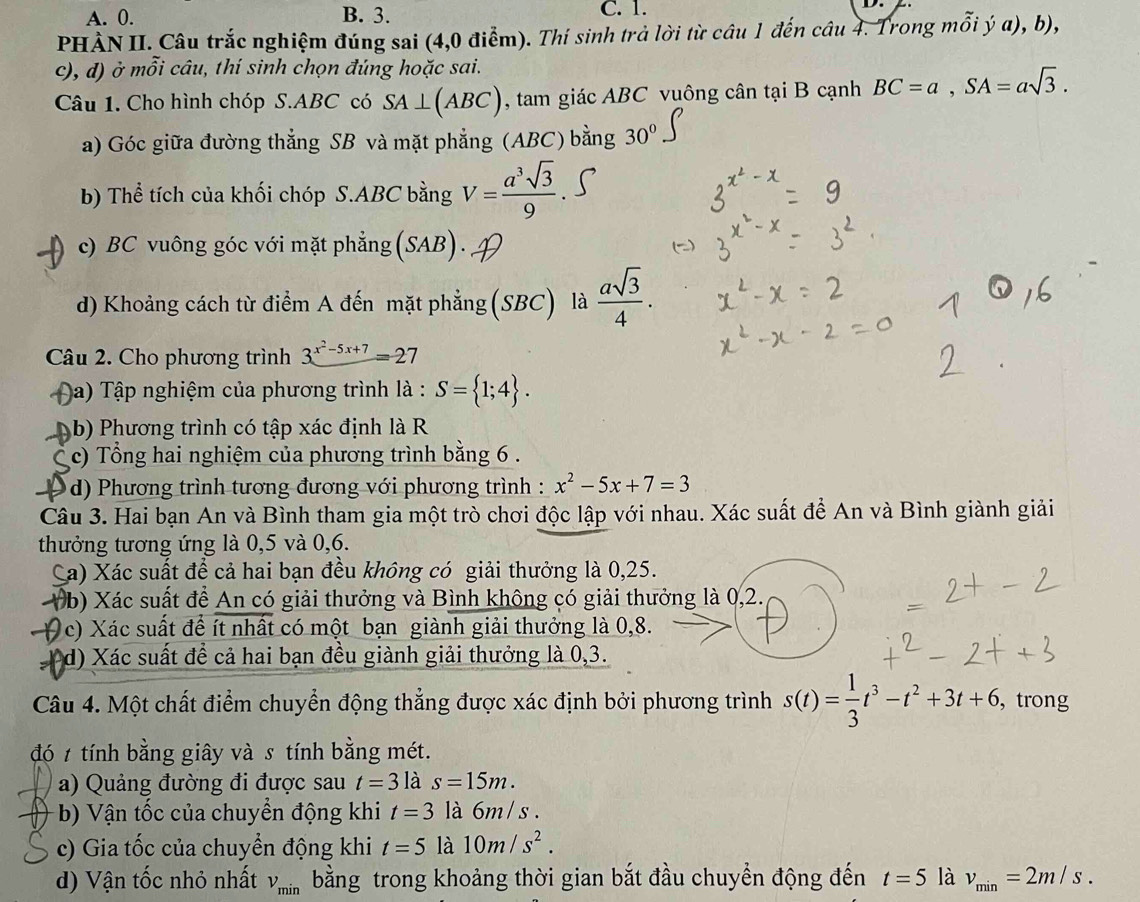 A. 0. B. 3. C. 1.
PHẦN II. Câu trắc nghiệm đúng sai (4,0 điểm). Thí sinh trả lời từ câu 1 đến câu 4. Trong mỗi ý a), b),
c), d) ở mỗi câu, thí sinh chọn đúng hoặc sai.
Câu 1. Cho hình chóp S.ABC có SA ⊥ (ABC), tam giác ABC vuông cân tại B cạnh BC = a , SA = a√3 .
a) Góc giữa đường thẳng SB và mặt phẳng (ABC) bằng 30⁰ S
b) Thể tích của khối chóp S.ABC bằng V = a³√3/9 . S
3^(x²-x) = 9
Đ c) BC vuông góc với mặt phẳng (SAB) . Đ
(-) 3^(x²-x) = 3² .
d) Khoảng cách từ điểm A đến mặt phẳng (SBC) là a√3/4 .
x² - x = 2
1 0,6
x² - x - 2 = 0
2 .
Câu 2. Cho phương trình 3^(x²-5x+7) = 27
Đ a) Tập nghiệm của phương trình là : S = {1;4} .
Đ b) Phương trình có tập xác định là R
S c) Tổng hai nghiệm của phương trình bằng 6 .
Đ d) Phương trình tương đương với phương trình : x² - 5x + 7 = 3
Câu 3. Hai bạn An và Bình tham gia một trò chơi độc lập với nhau. Xác suất để An và Bình giành giải
thưởng tương ứng là 0,5 và 0,6.
S a) Xác suất để cả hai bạn đều không có giải thưởng là 0,25.
Đ b) Xác suất để An có giải thưởng và Bình không có giải thưởng là 0,2.
Đ
= 2t - 2
Đ c) Xác suất để ít nhất có một bạn giành giải thưởng là 0,8.
Đ d) Xác suất để cả hai bạn đều giành giải thưởng là 0,3.
t² - 2t + 3
Câu 4. Một chất điểm chuyển động thẳng được xác định bởi phương trình s(t) = 1/3 t³ - t² + 3t + 6, trong
đó t tính bằng giây và s tính bằng mét.
Đ a) Quảng đường đi được sau t = 3 là s = 15m .
Đ b) Vận tốc của chuyển động khi t = 3 là 6m/s .
S c) Gia tốc của chuyển động khi t = 5 là 10m/s² .
d) Vận tốc nhỏ nhất v_min bằng trong khoảng thời gian bắt đầu chuyển động đến t = 5 là v_min = 2m/s .